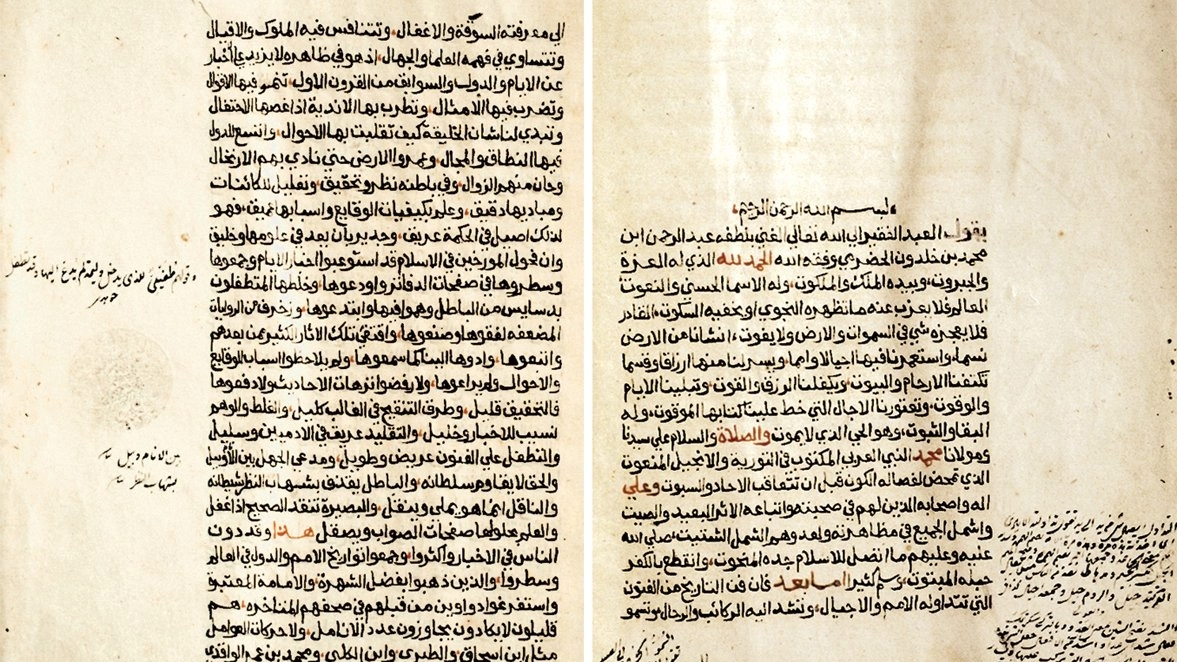 بسم الله الرحمن الرحيم
يقول العبد الفقير الي الله تعالي الغني بلطفه عبد الرحمن ابن
محمد بن خلدون الحضرمي وفقه الله الحمد لله الذي له العزة
والجبروت، وبيده الملك والملكوت، وله الاسما الحسني والنعوت
العالم فلا يعزب عنه ما تظهره النجوي او يخفيه السكوت، القادر
فلا يعجزه شي في السموات والارض ولا يفوت، انشانا من الارض
نسما، واستعمرنا فيها اجيالا وامما، ويسر لنا منها ارزاقا وقسما
تكنفنا الارحام والبيوت، ويكفلنا الرزق والقوت، وتبلينا الايام
والوقوت، وتعتورنا الاجال التي خط علينا كتابها الموقوت، وله
البقا والثبوت، وهو الحي الذي لا يموت والصلاة والسلام علي سيدنا
ومولانا محمد النبي العربي المكتوب في التورية والانجيل المنعوت
الذي تمحض لفصاله الكون قبل ان تتعاقب الاحاد والسبوت وعلي
اله واصحابه الذين لهم في صحبته واتباعه الاثر البعيد والصيت
والشمل الجميع في مظاهرته ولعدوهم الشمل الشتيت، صلي الله
عليه وعليهم ما اتصل للاسلام جده المبخوت، وانقطع بالكفر
حبله المبتوت، وسلم كثيرا اما بعد فان فن التاريخ من الفنون
التي تتداوله الامم والاجيال، وتشد اليه الركائب والرحال، وتسمو
الي معرفته السوقة والاغفال، وتتنافس فيه الملوك والاقيال
وتتساوي في فهمه العلما والجهال، اذ هو في ظاهره لا يزيد علي اخبار
عن الايام والدول، والسوابق من القرون الاول، تنمو فيها الاقوال
وتضرب فيها الامثال، وتطرب بها الاندية اذا غصها الاحتفال
وتبدي لنا شان الخليقة كيف تقلبت بها الاحوال، واتسع للدول
فيها النطاق والمجال، وعمروا الارض حتي نادي بهم الارتحال
وحان منهم الزوال، وفي باطنه نظر وتحقيق، وتعليل للكائنات
ومباديها دقيق، وعلم بكيفيات الوقايع واسبابها عميق، فهو
لذلك اصيل في الحكمة عريق، وجدير بان يعد في علومها وخليق
وان فحول المورخين في الاسلام قد استوعبوا اخبار الايام وجمعوها
وسطروها في صفحات الدفاتر واودعوها، وخلطها المتطفلون
بدسايس من الباطل وهموا فيها وابتدعوها، وزخرف من الروايات
المضعفه لفقوها وصنعوها، واقتفي تلك الاثار الكثير ممن بعدهم
واتبعوها، وادوها الينا كما سمعوها، ولم يلاحظوا اسباب الوقايع
والاحوال ولم يراعوها، ولا رفضوا ترهات الاحاديث ولا دفعوها
فالتحقيق قليل، وطرف التنقيح في الغالب كليل، والغلط والوهم
نسيب للاخبار وخليل، والتقليد عريق في الادميين وسليل
والتطفل علي الفنون عريض وطويل، ومدعي الجهل بين
والحق لا يقاوم سلطانه، والباطل يقذف بشهاب النظر شيطانه
والناقل انما هو يملي وينقل، والبصيرة تنقد الصحيح اذا تمقل
والعلم يجلو لها صفحات الصواب ويصقل هذا وقد دون
الناس في الاخبار واكثروا، وجمعوا تواريخ الامم والدول في العالم
وسطروا، والذين ذهبوا بفضل الشهرة، والامامة المعتبرة
واستفرغوا دواوين من قبلهم في صحفهم المتاخره، هم
قليلون لا يكادون يجاوزون عدد الانامل، ولا حركات العوامل
مثل ابن اسحاق، والطبري، وابن الكلبي، ومحمد بن عمر الواقدي
بين الانام وبيل
بشهاب النظر